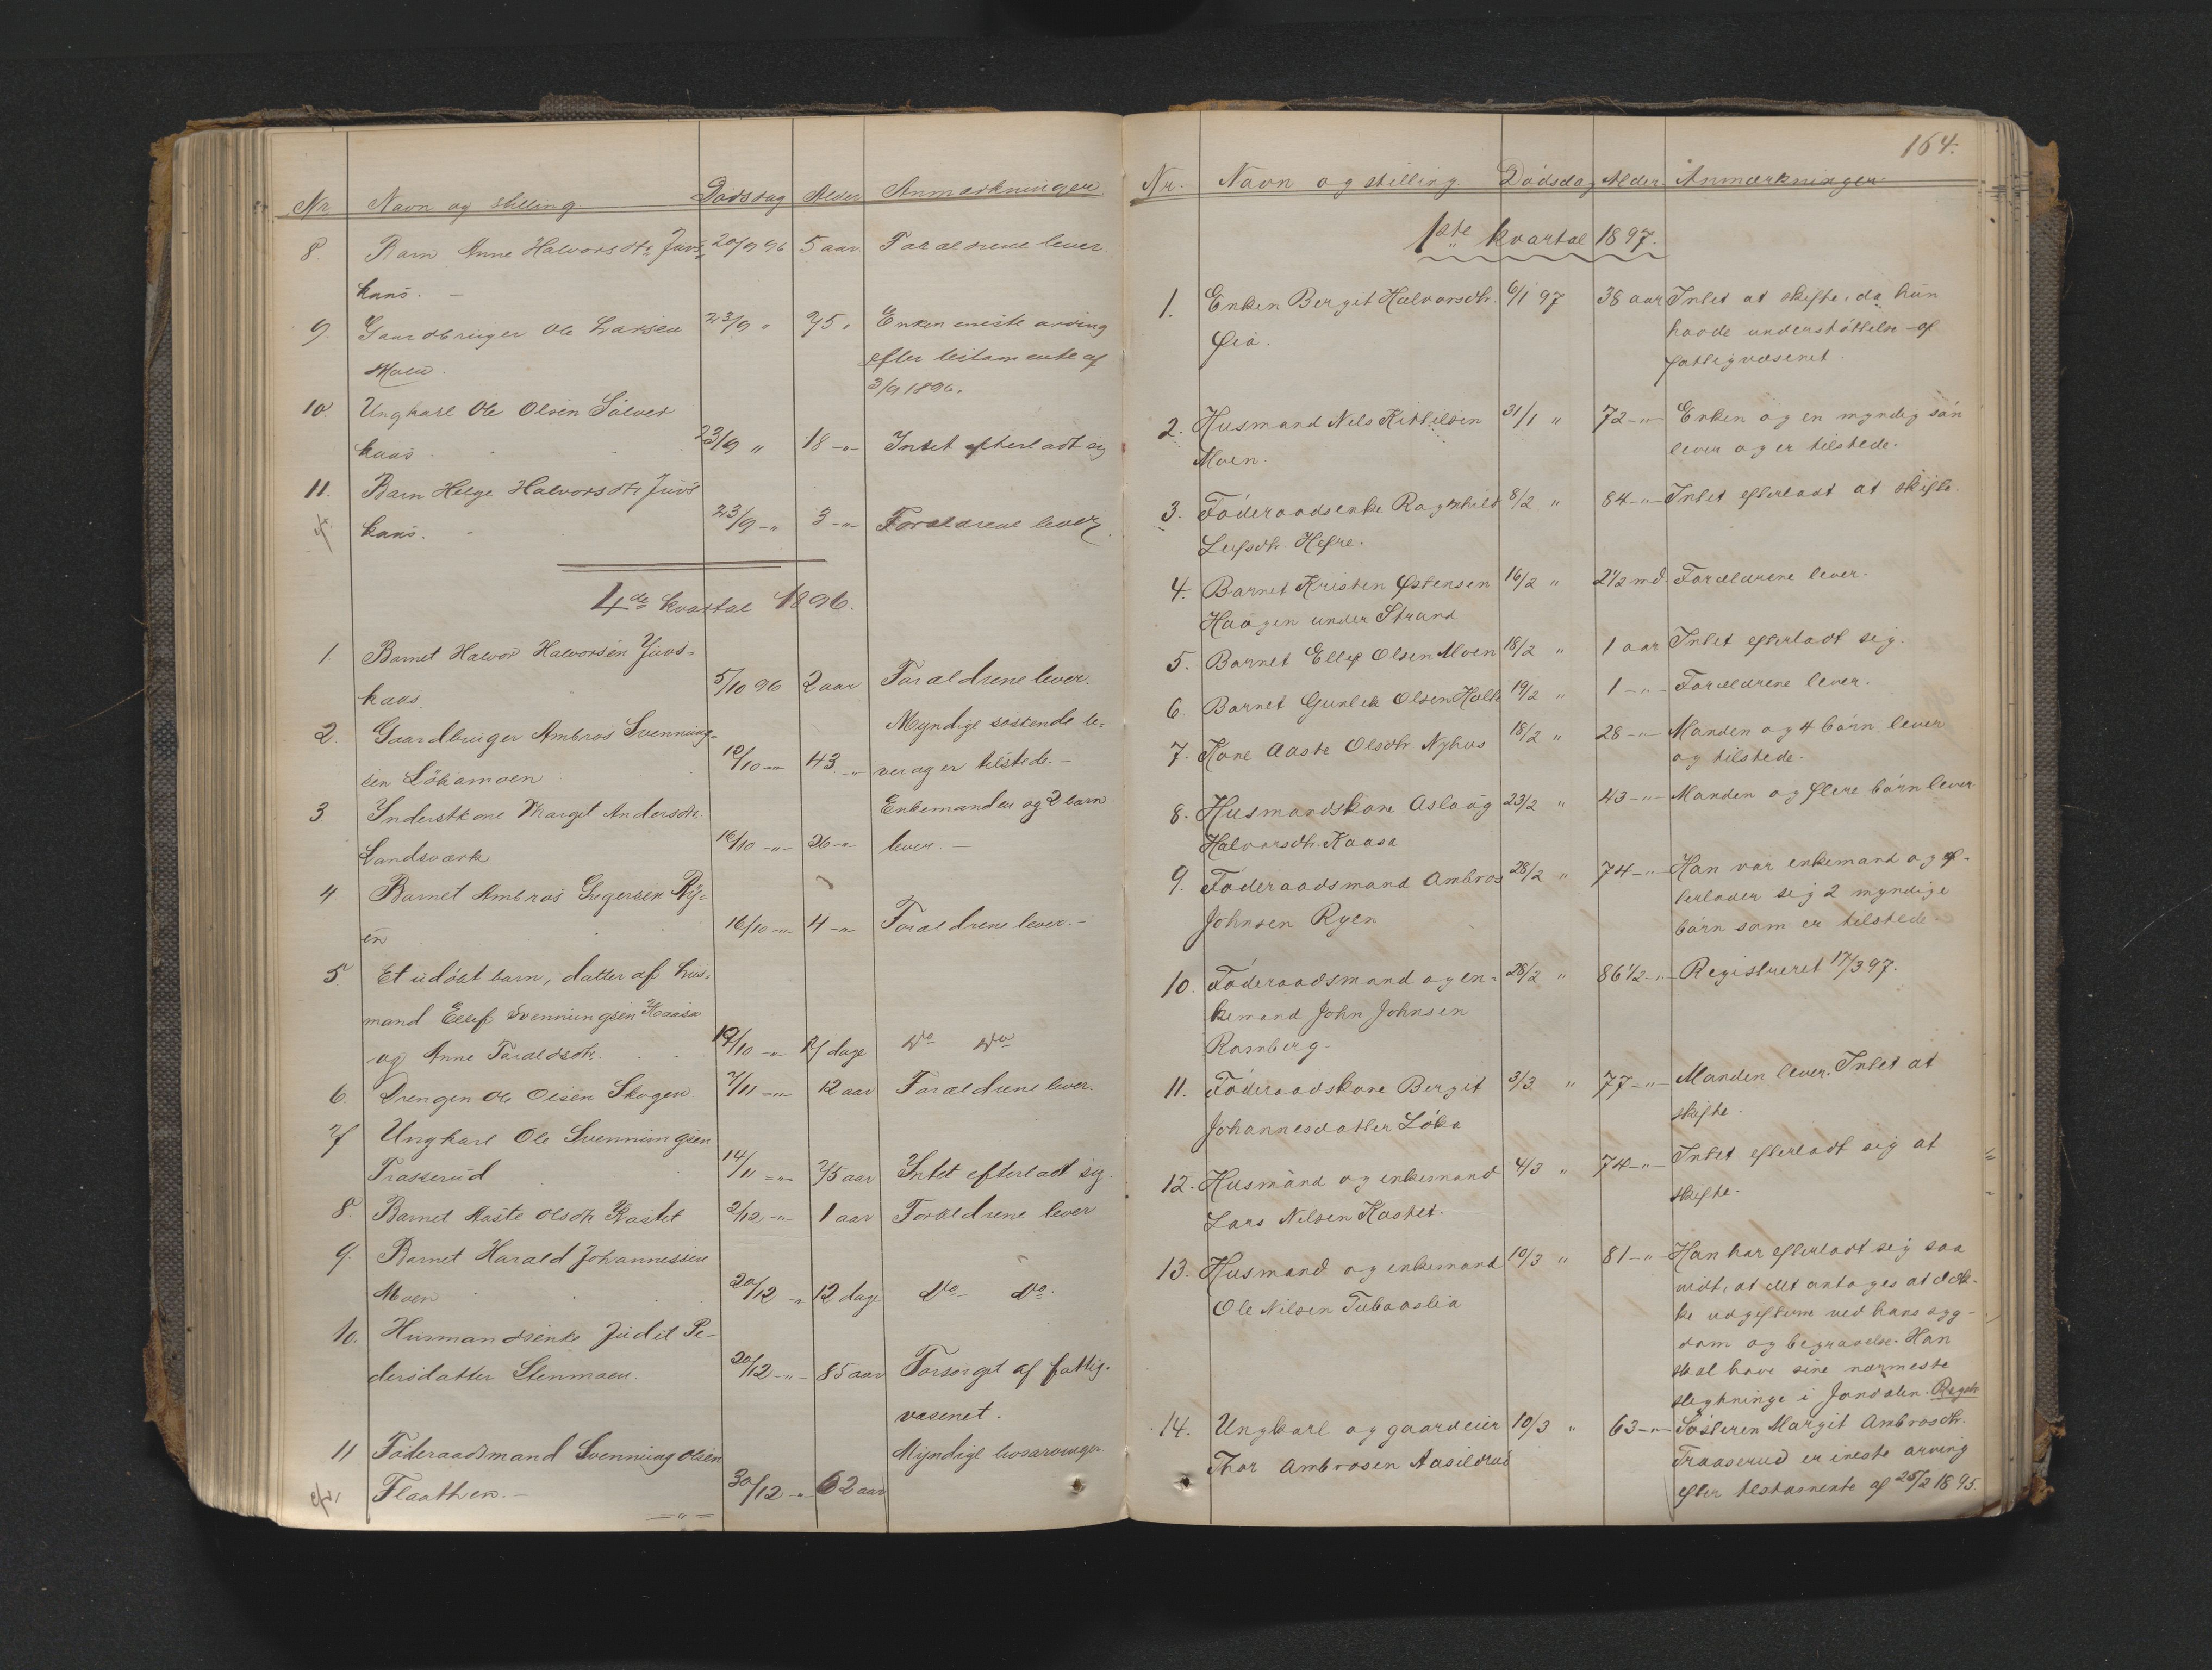 Nr. Navn og stilling. Dødsdag Alder Anmærkninger
8. Barn Anne Halvorsdtr. Juvs- 20/9 96 5 aar. Forældrene lever.
kaas. -
9. Gaardbruger Ole Larsen 23/9 " 75 " Enken eneste arving
Moen. efter testamente af
3/9 1896.
10. Ungkarl Ole Olsen Sølver
kaas. 23/9 " 18 -"- Intet efterladt sig
11. Barn Helge Halvorsdtr Juvs
kaas. 23/9 -" 3 -"- Forældrene lever.
4de kvartal 1896.
1. Barnet Halvor Halvorsen Juvs=
kaas. 5/10 96 2 aar Forældrene lever.
2. Gaardbruger Ambros Svenning= Myndige søskende le-
sen Lökamoen 10/10 -"- 43 -"- ver og er tilstede. -
3 Inderstkone Margit Andersdtr. Enkemanden og 2 barn
Landsværk 16/10 -"- 26 -"- lever. -
4. Barnet Ambros Gregersen Ry=
en 16/10 -"- 4 -"- Forældrene lever. -
5. Et udøbt barn, datter af hus=
mand Ellef Svenningsen Kaasa
og Anne Taraldsdtr. 19/10 -"- 17 dage do do
6. Drengen Ole Olsen Skogen. 7/11 -"- 12 aar Forældrene lever.
7 Ungkarl Ole Svenningsen
Traaserud 14/11 -"- 75 aar Intet efterladt sig.
8. Barnet Aaste Olsdtr Kastet 2/12 -"- 1 aar Forældrene lever
9. Barnet Harald Johannessen
Moen 20/12 -" 12 dage do- do.
10. Husmandsenke Judit Pe-
dersdatter Stenmoen. 20/12 -"- 85 aar Forsørget af fattig-
væsenet.
11 Føderaadsmand Svenning Olsen Myndige livsarvinger.
Flaathen. - 30/12 -"- 62 aar
="=
164.
Nr. Navn og stilling. Dødsdag Alder. Anmærkninger
1ste kvartal 1897.
1. Enken Bergit Halvorsdtr. 6/1 97 38 aar Intet at skifte, da hun
Øiā. havde understøttelse af
fattigvæsenet.
2. Husmand Nels Kittilsen 31/1 " 72 -"- Enken og en myndig søn
Moen. lever og er tilstede.
3. Føderaadsenke Ragnhild 8/2 " 84 -"- Intet efterladt at skifte.
Leifsdtr. Hefre.
4. Barnet Kristen Østensen 16/2 " 2½ md. Forældrene lever.
Haugen under Strand
5. Barnet Ellef Olsen Moen 18/2 " 1 aar Intet efterladt sig.
6. Barnet Gunlek Olsen Holte 19/2 " 1 -"- Forældrene lever.
7. Kone Aaste Olsdtr Nyhus 18/2 " 28 -"- Manden og 4 børn lever
og tilstede.
8. Husmandskone Aslaug 23/2 " 43 -"- Manden og flere børn lever
Halvorsdtr. Kaasa
9. Føderaadsmand Ambros 28/2 " 74 -"- Han var enkemand og ef-
Johnsen Ryen terlader sig 2 myndige
børn som er tilstede.
10. Føderaadsmand og en- 28/2 " 86½ -"- Registreret 17/3 97.
kemand John Johnsen
Ramberg.
11. Føderaadskone Bergit 3/3 " 77 -"- Manden lever. Intet at
Johannesdatter Löka skifte.
12. Husmand og enkemand 4/3 " 74 -"- Intet efterladt sig at
Lars Nilsen Kastet. skifte.
13. Husmand og enkemand 10/3 " 81 -"- Han har efterladt sig saa
Ole Nilsen Tubaaslia vidt, at det antages at dæk-
ke udgifterne ved hans syg-
dom og begravelse. Han
skal have sine nærmeste
slegtninge i Jondalen. Regstr
14. Ungkarl og gaardeier 10/3 " 63 -"- Søsteren Margit Ambrosdtr.
Thor Ambrosen Aasilsrud Traaserud er eneste arving
efter testamente af 25/2 1895.